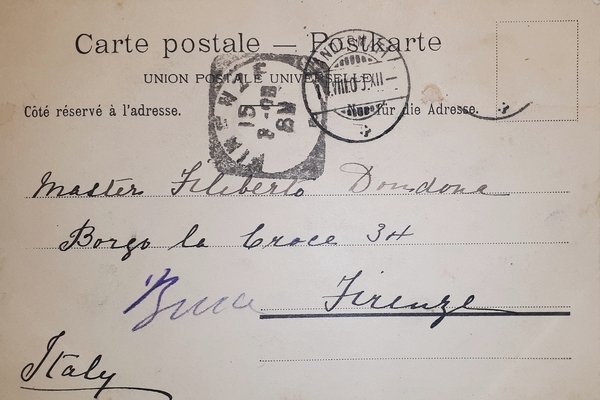 Carte postale — Postkarte
UNION POSTALE UNIVERSELLE
Côté réservé à l'adresse. Nur für die Adresse.
Master Filiberto Dondona
Borgo la Croce 34
Firenze
Italy